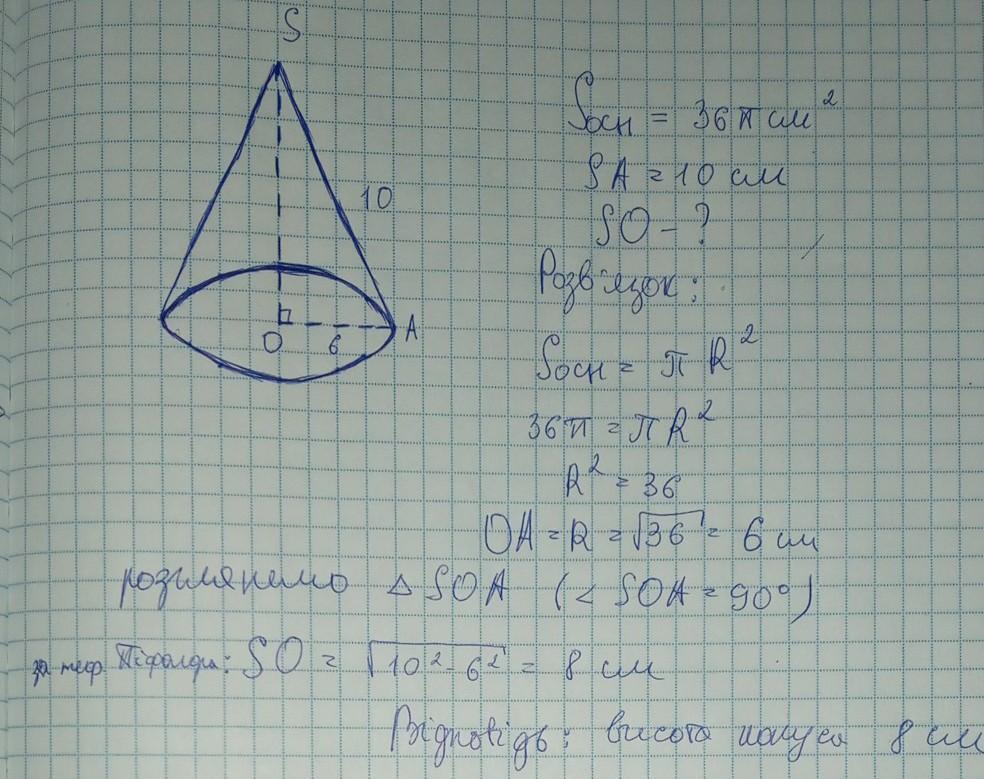 S
10
O
6
A
Sосн = 36π см²
SA = 10 см
SO - ?
Розв'язок:
Sосн = π R²
36π = πR²
R² = 36
OA = R = √36 = 6 см
розглянемо △ SOA (< SOA = 90°)
за теор. Піфагора: SO = √10² - 6² = 8 см
Відповідь: висота конуса 8 см